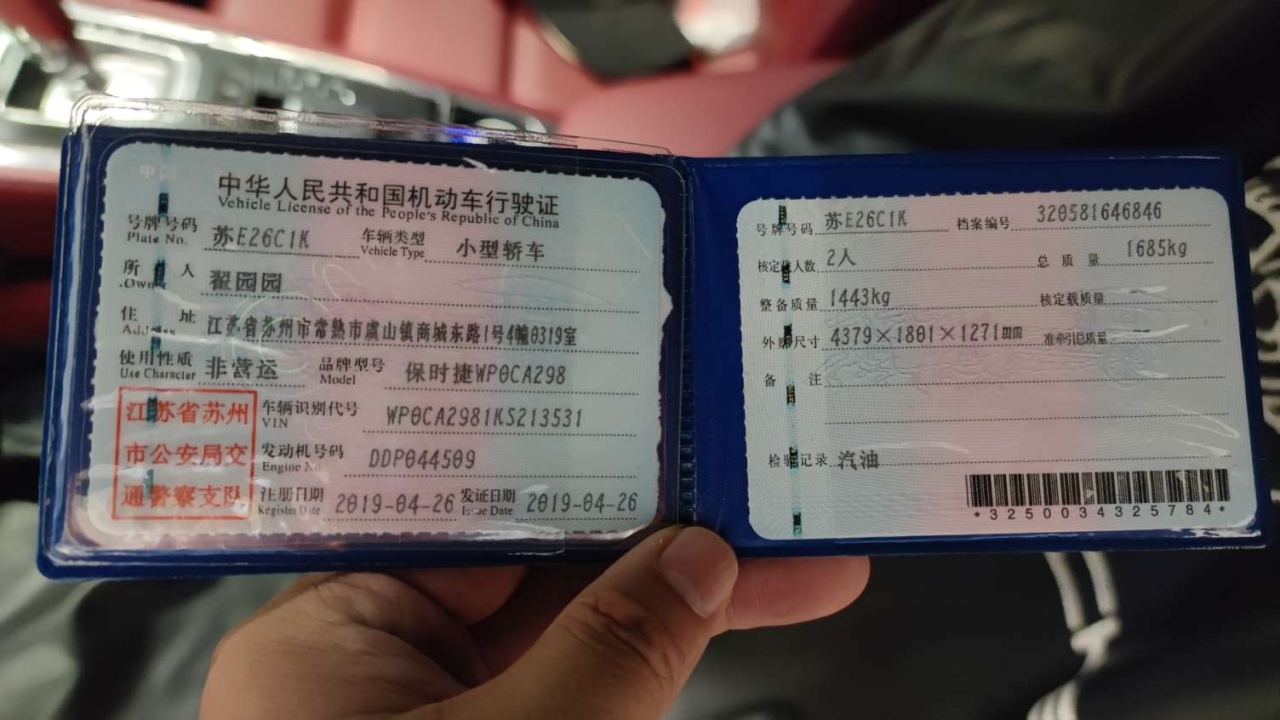 中国
中华人民共和国机动车行驶证
Vehicle License of the People's Republic of China
号牌号码 Plate No. 苏E26C1K 车辆类型 Vehicle Type 小型轿车
所有人 Owner 翟园园
住址 Address 江苏省苏州市常熟市虞山镇商城东路1号4幢0319室
使用性质 Use Character 非营运 品牌型号 Model 保时捷WP0CA298
江苏省苏州
市公安局交
通警察支队
车辆识别代号 VIN WP0CA2981KS213531
发动机号码 Engine No. DDP044509
注册日期 Register Date 2019-04-26 发证日期 Issue Date 2019-04-26
号牌号码 苏E26C1K 档案编号 320581646846
核定载人数 2人 总质量 1685kg
整备质量 1443kg 核定载质量
外廓尺寸 4379×1801×1271mm 准牵引总质量
备注
检验记录 汽油
*3250034325784*